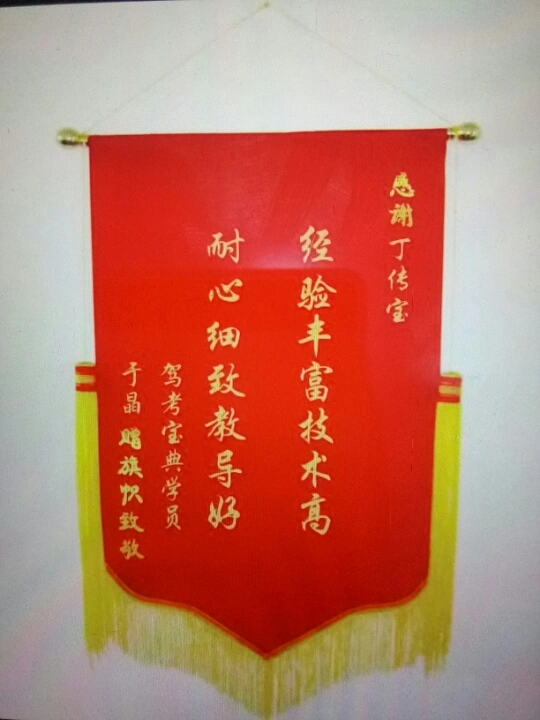 感謝丁传宝
经验丰富技术高
耐心细致教导好
驾考宝典学员
于晶赠旗帜致敬